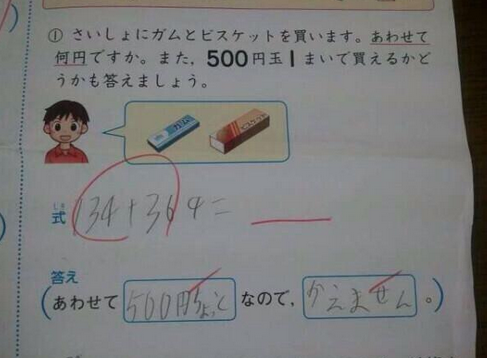 ① さいしょにガムとビスケットを買います。あわせて
何円ですか。また，500円玉1まいで買えるかど
うかも答えましょう。
ガム ビスケット
式 134+364=
答え
(あわせて 500円ちょっと なので， かえません 。)